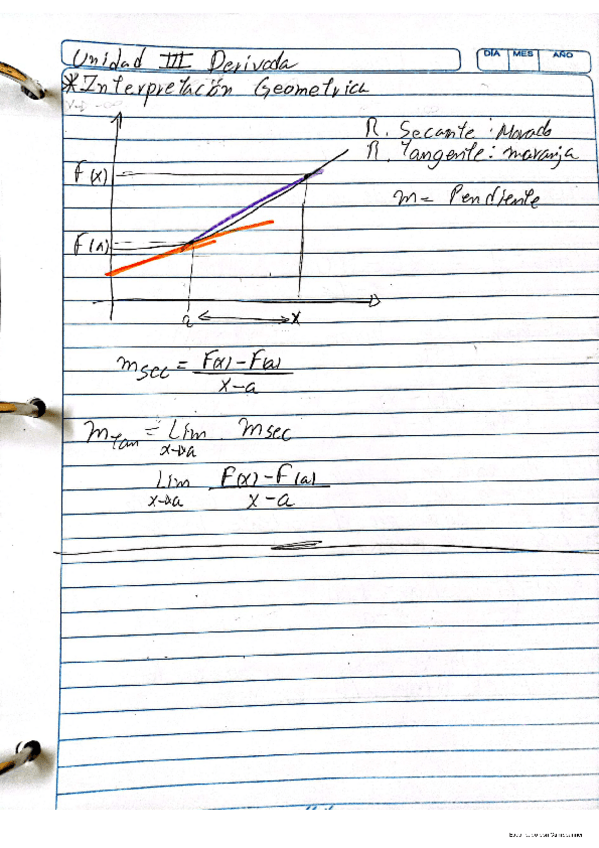 Unidad III Derivada
DÍA MES AÑO
*Interpretación Geometrica
R. Secante: Morado
R. Tangente: naranja
F(x)
m = Pendiente
F(a)
a x
m sec = F(x) - F(a)
x - a
m tan = Lim m sec
x→a
Lim F(x) - F(a)
x→a x - a